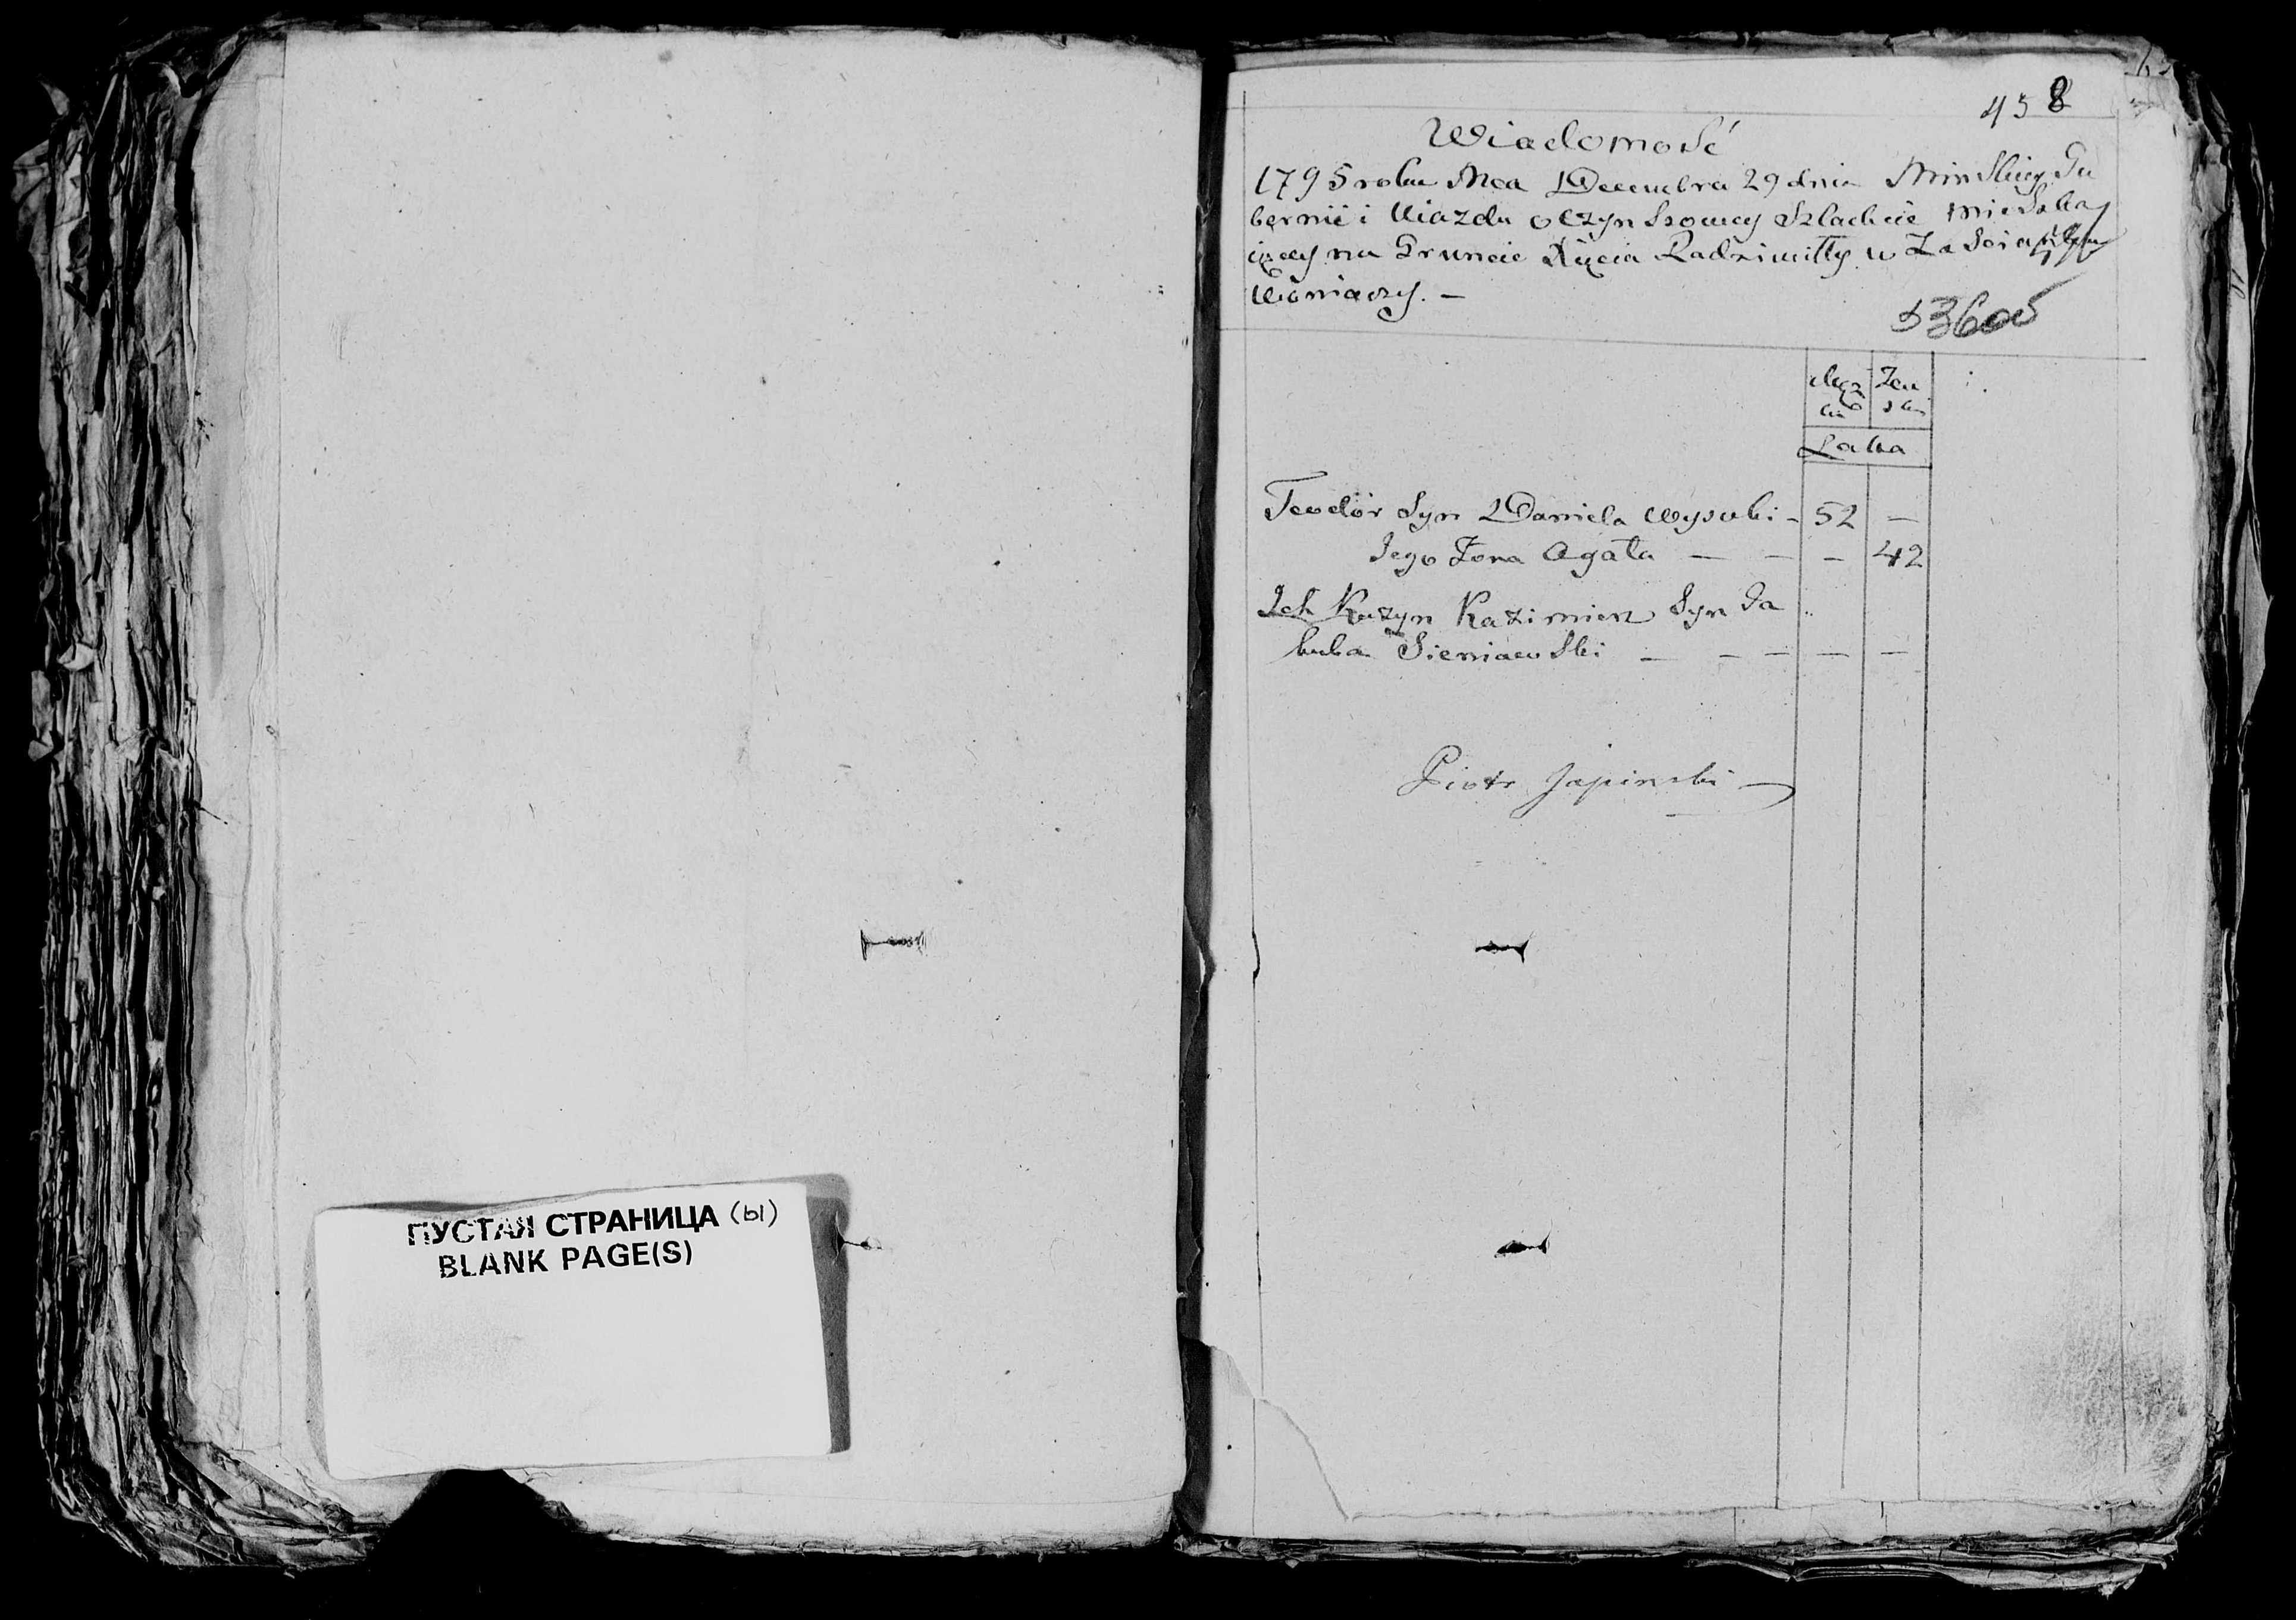 ПУСТАЯ СТРАНИЦА (ы)
BLANK PAGE(S)
458
Wiadomość
1795 roku Mca Decembra 29 dnia Minskiey Gu
bernii i Uiazdu o Czynszowey Szlachcie mieszka
iącey na Gruncie Xięcia Radziwiłły w Zaścianku
Męż Żeń
ka ska
Lata
Teodor Syn Daniela Wysocki - 52 —
Jego Żona Agata — — — 42
Ich Kuzyn Kazimierz Syn Ja
kuba Sieniawski — — — — —
Piotr Japinski